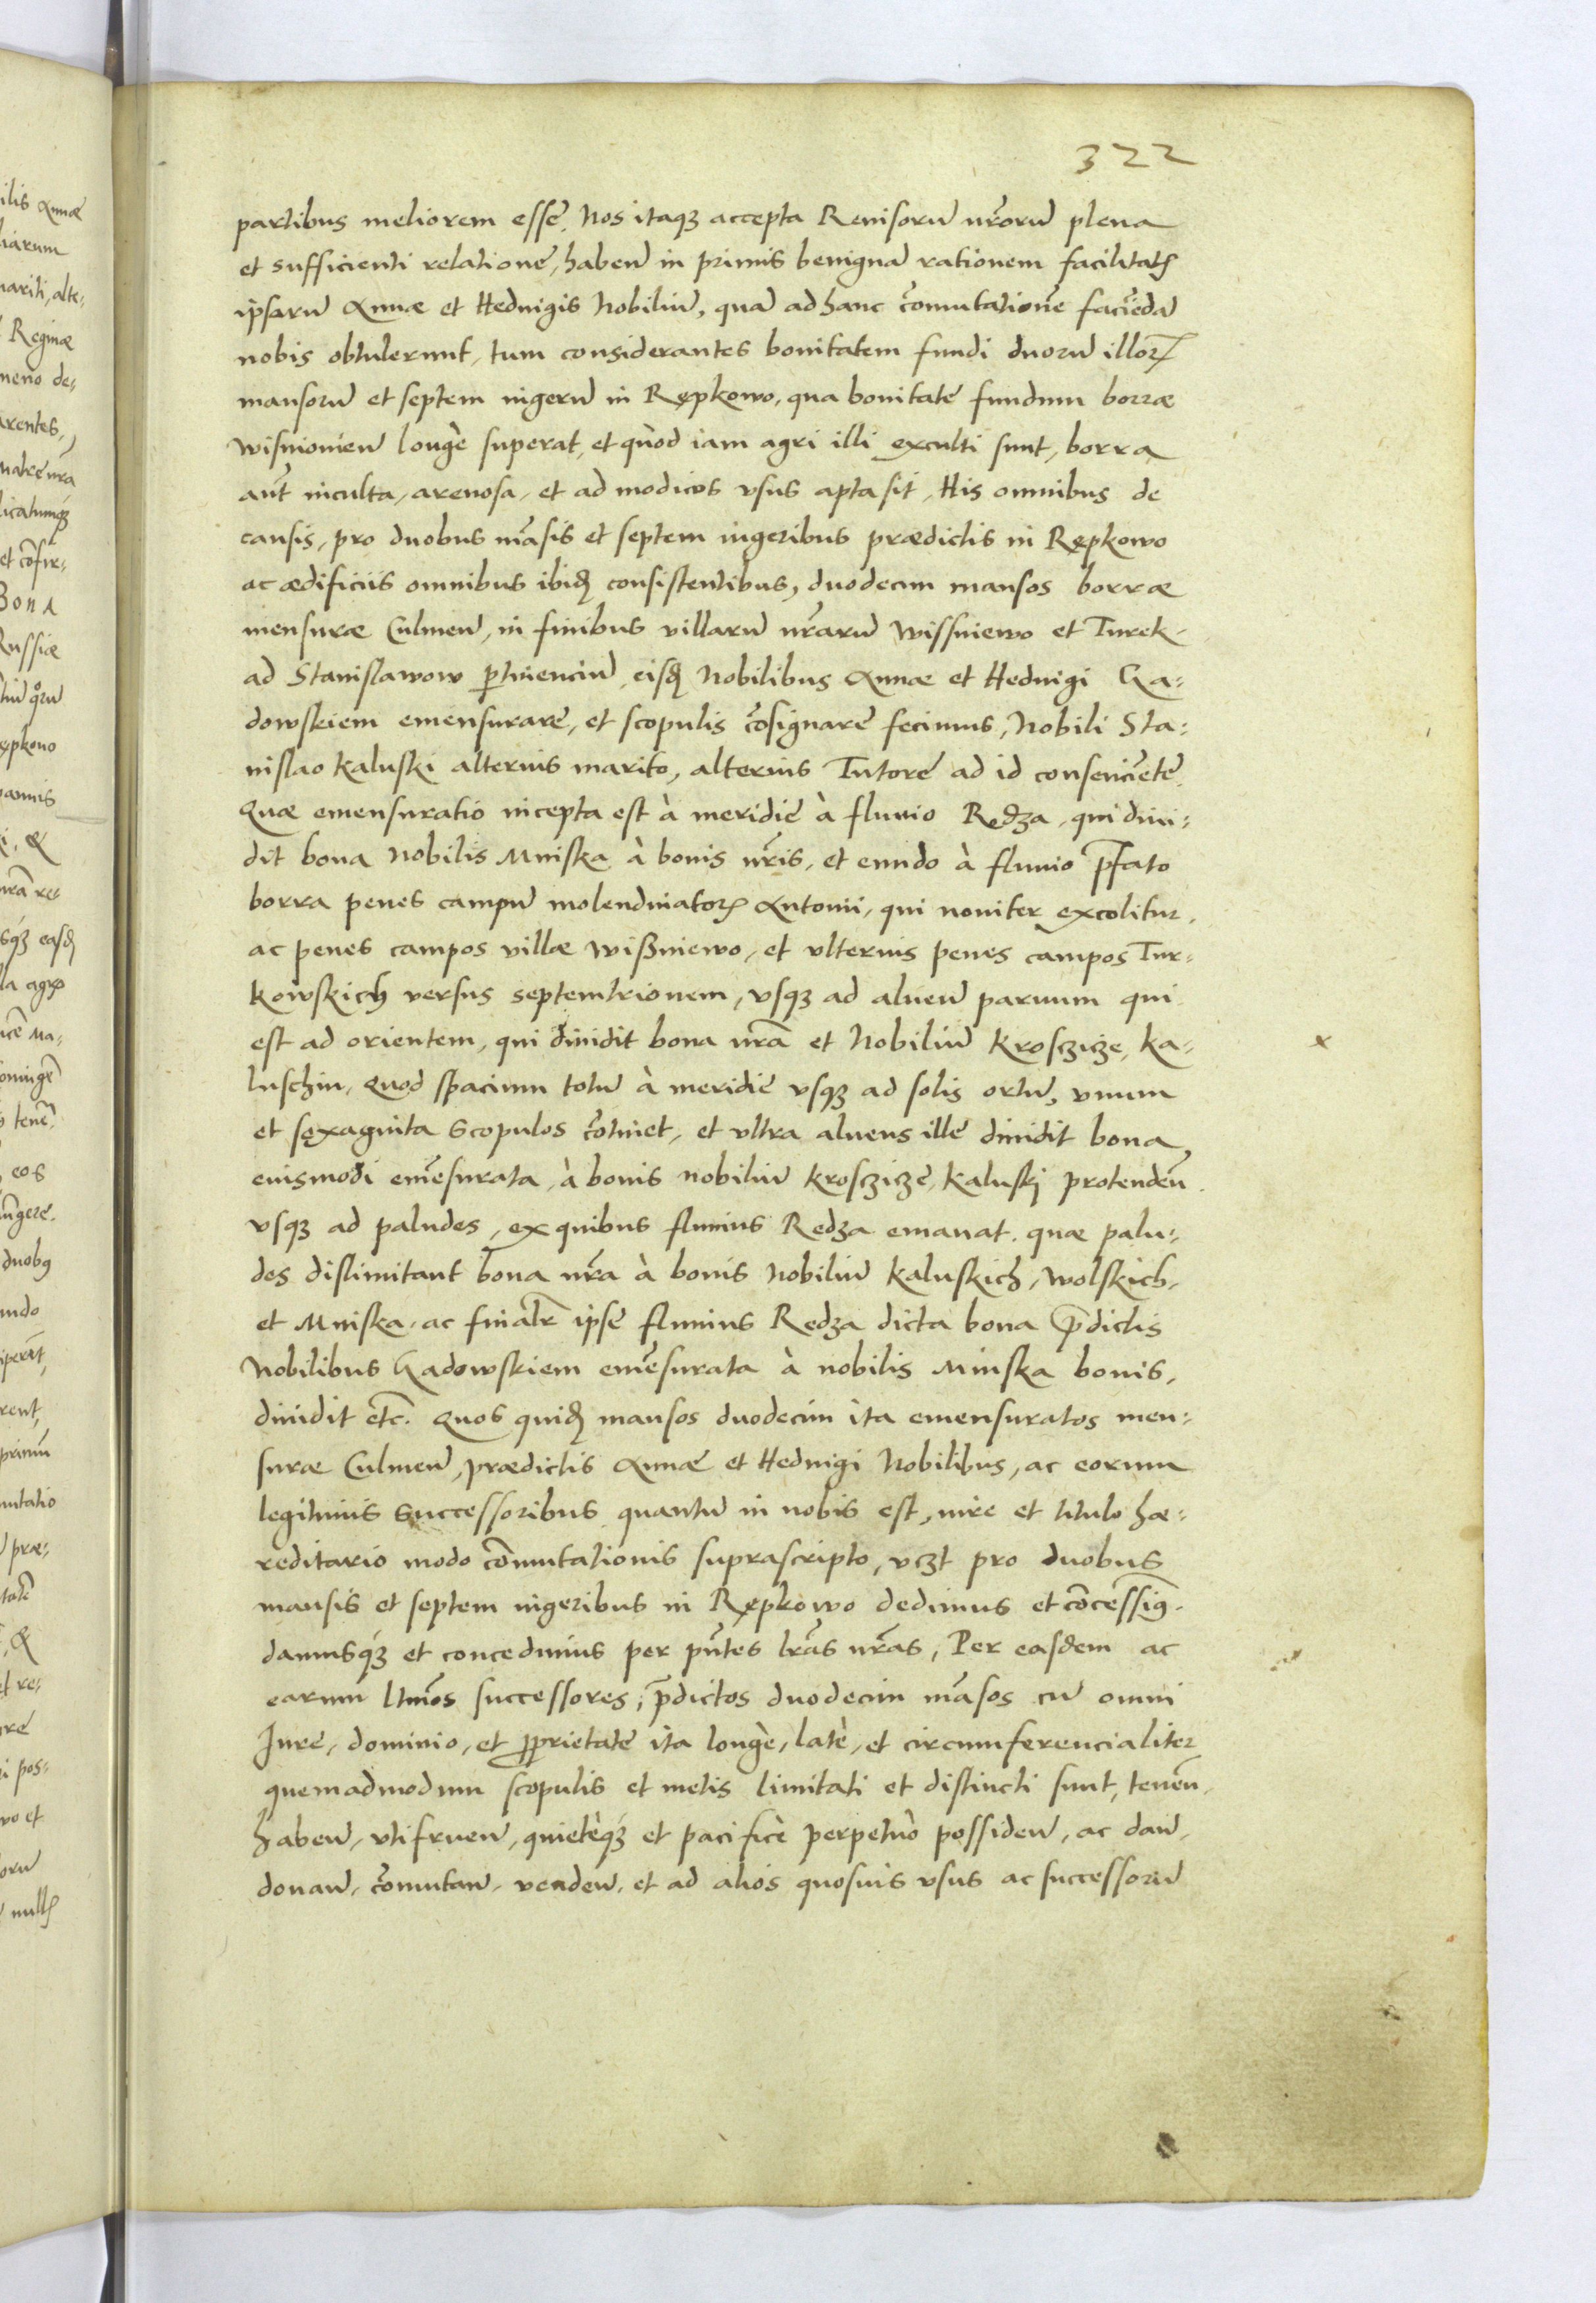 322
partibus meliorem esse, Nos itaqꝫ accepta Reuisorū nr̄orū plena
et sufficienti relatione, habeñ in primis benignā rationem facilitatꝭ
ipsarū Annæ et Heduigis Nobiliū, quā ad hanc cōmutationē faciēdā
nobis obtulerunt, tum considerantes bonitatem fundi duorū illoꝝ
mansorū et septem iugerū in Rępkowo, qua bonitate fundum borræ
wisniouieñ longè superat, et quòd iam agri illi exculti sunt, borra
aūt inculta, arenosa, et ad modicos vsus apta sit, His omnibus de
causis, pro duobus māsis et septem iugeribus prædictis in Rępkowo
ac ædificiis omnibus ibidꝫ consistentibus, duodecim mansos borræ
mensuræ Culmeñ, in finibus villarū nr̄arū wissniewo et Turek
ad Stanislawow ꝑtinenciū, eisdꝫ Nobilibus Annæ et Heduigi Ga-
dowskiem emensurare, et scopulis cōsignare fecimus, Nobili Sta-
nislao Kaluski alterius marito, alterius Tutore ad id consencīete.
Quæ emensuratio incepta est à meridie à fluuio Redza, qui diui-
dit bona Nobilis Mniska à bonis nr̄is, et eundo à fluuio p̄fato
borra penes campū molendinatorꝭ Antonii, qui nouiter excolitur.
ac penes campos villæ wißniewo, et vlterius penes campos Tur-
kowskich versus septemtrionem, vsqꝫ ad alueū paruum qui
est ad orientem, qui diuidit bona nr̄a et Nobiliū Krosczicze, Ka-
luschin, quod spacium totū à meridie vsqꝫ ad solis ortū, vnum
et sexaginta scopulos cōtinet, et vltra alueus ille diuidit bona
euismodi emēsurata, à bonis nobiliū Krosczicze, Kaluskj protendeñ
vsqꝫ ad paludes, ex quibus fluuius Redza emanat. quæ palu-
des dislimitant bona nr̄a à bonis Nobiliū Kaluskich, wolskich,
et Mniska, ac finalr̄ ipse fluuius Redza dicta bona p̄dictis
Nobilibus Gadowskiem emēsurata à nobilis Minska bonis,
diuidit etc. Quos quidꝫ mansos duodecim ita emensuratos men-
suræ Culmeñ, prædictis Annæ et Heduigi Nobilibus, ac eorum
legitimis successoribus quantū in nobis est, iure et titulo hæ-
reditario modo cōmutationis suprascripto, vczt pro duobus
mansis et septem iugeribus in Rępkowo dedimus et cōcessimꝰ.
damusqꝫ et concedimus per pn̄tes lr̄as nr̄as, Per easdem ac
earum ltīmos successores, p̄dictos duodecim māsos cū omni
Iure, dominio, et ꝓprietate ita longè, latè, et circumferencialiter
quemadmodum scopulis et metis limitati et distincti sunt, teneñ
habeñ, vtifrueñ, quietèqꝫ et pacificè perpetuò possideñ, ac dañ,
donañ, cōmutañ, vendeñ, et ad alios quosuis vsus ac successorū